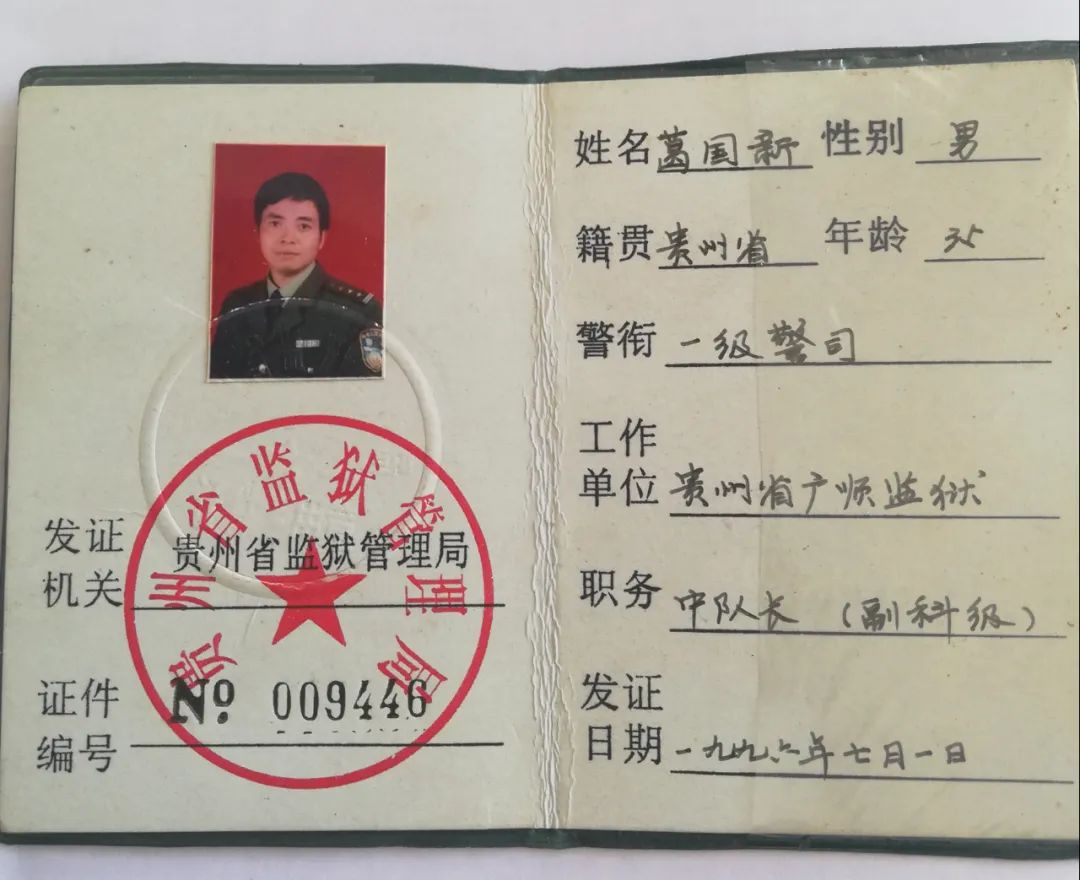 发证
机关 贵州省监狱管理局
贵州省监狱管理局
证件
编号 Nº 009446
姓名 葛国新 性别 男
籍贯 贵州省 年龄 35
警衔 一级警司
工作
单位 贵州省广顺监狱
职务 中队长 (副科级)
发证
日期 一九九六年七月一日